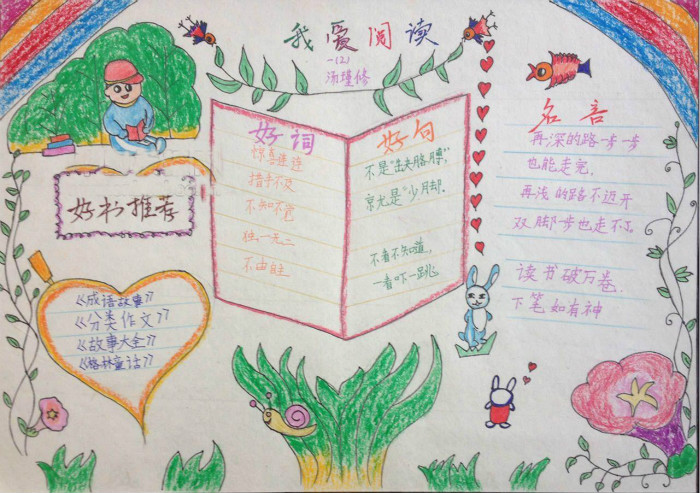 我爱阅读
一(2)
汤瑾修
好书推荐
《成语故事》
《分类作文》
《故事大全》
《格林童话》
好词
惊喜连连
措手不及
不知不觉
独一无二
不由自主
好句
不是“缺胳膊”,
就是“少脚.
不看不知道,
一看吓一跳
名言
再深的路一步一步
也能走完,
再浅的路不迈开
双脚一步也走不了。
读书破万卷.
下笔如有神